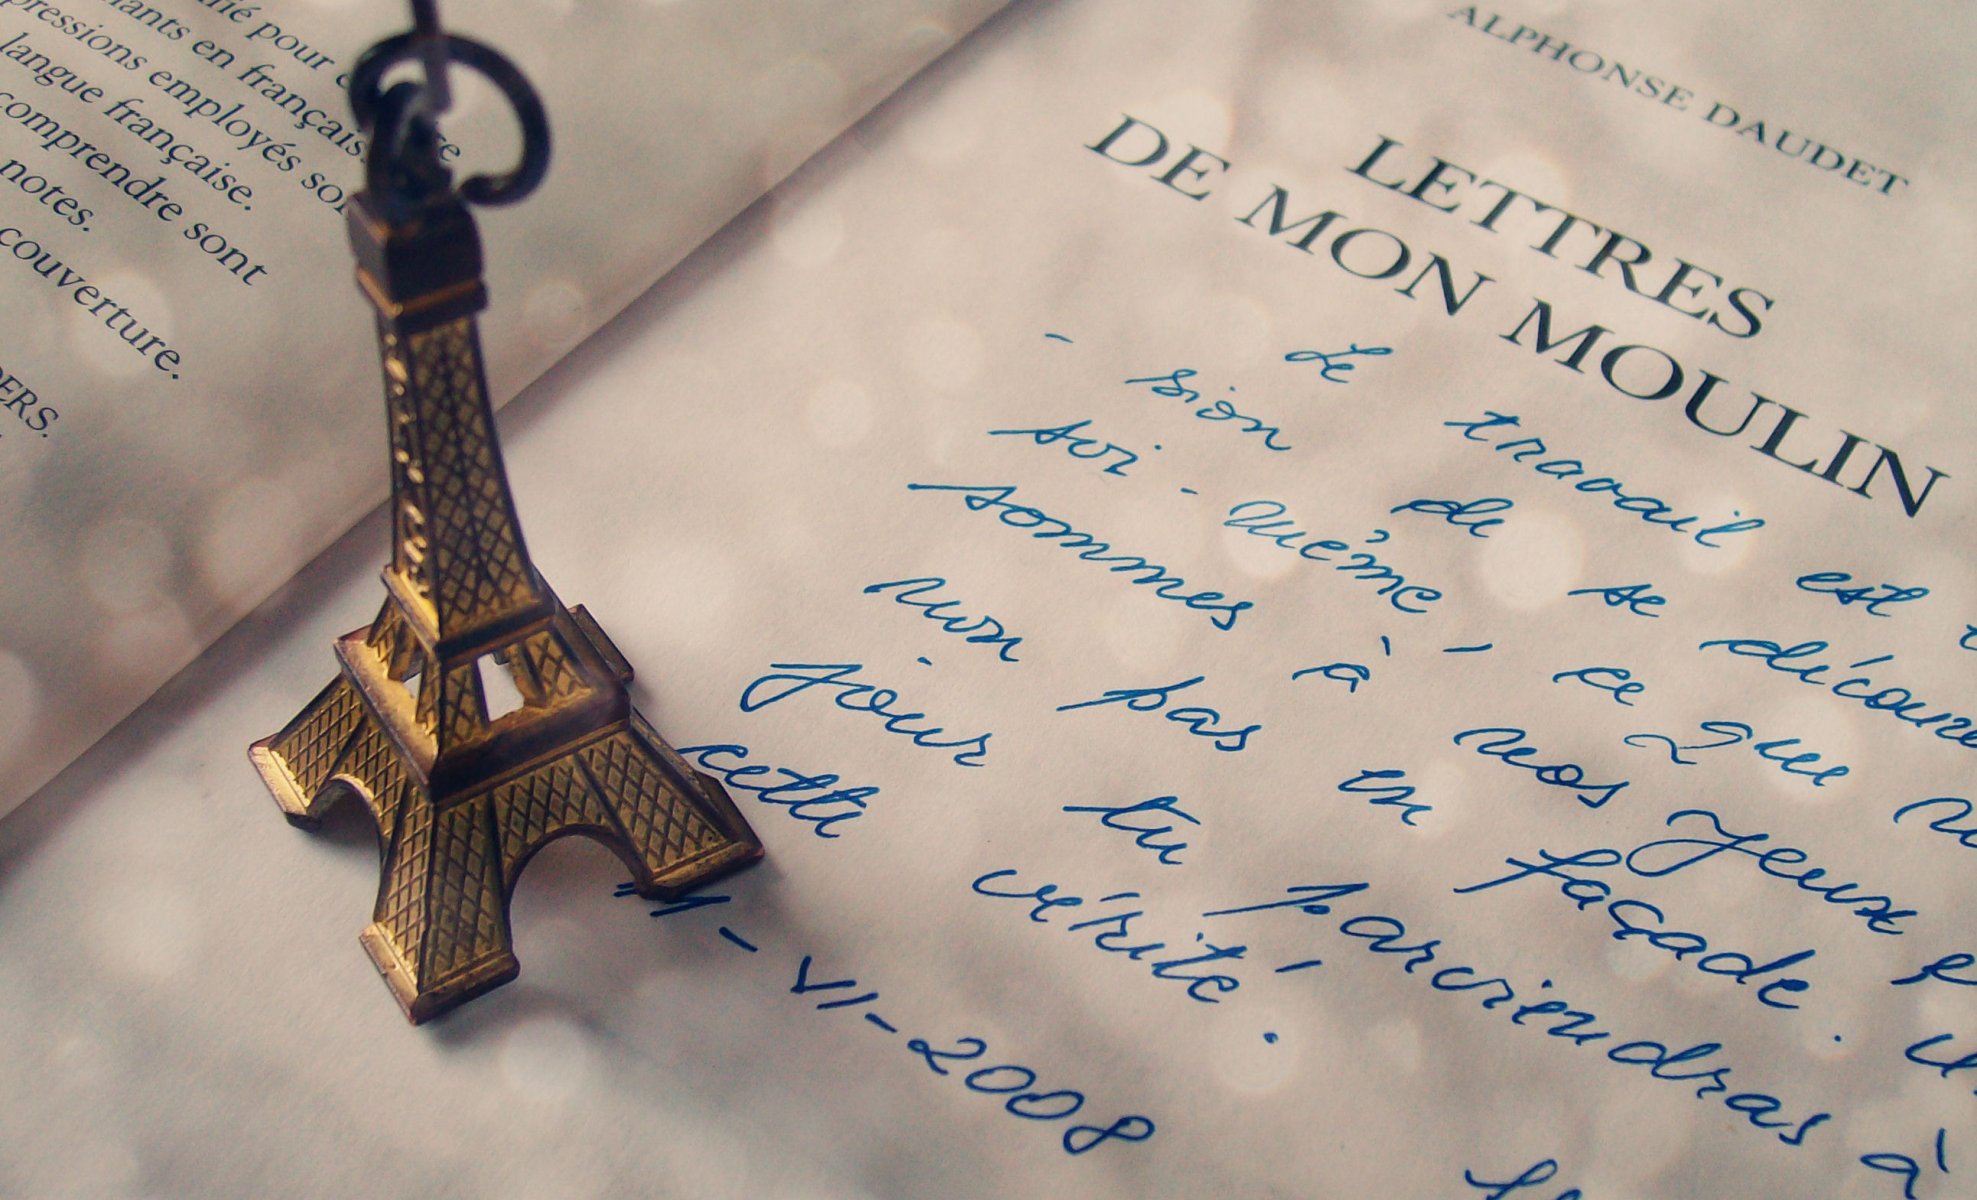 ié pour
ants en français.
pressions employés so
langue française.
comprendre sont
notes.
couverture.
DERS.
ALPHONSE DAUDET
LETTRES
DE MON MOULIN
Le travail est
-sion de se découvr
soi-même, ce que
sommes à nos yeux
non pas en façade.
jour tu parviendras à
cette vérité.
VI-2008